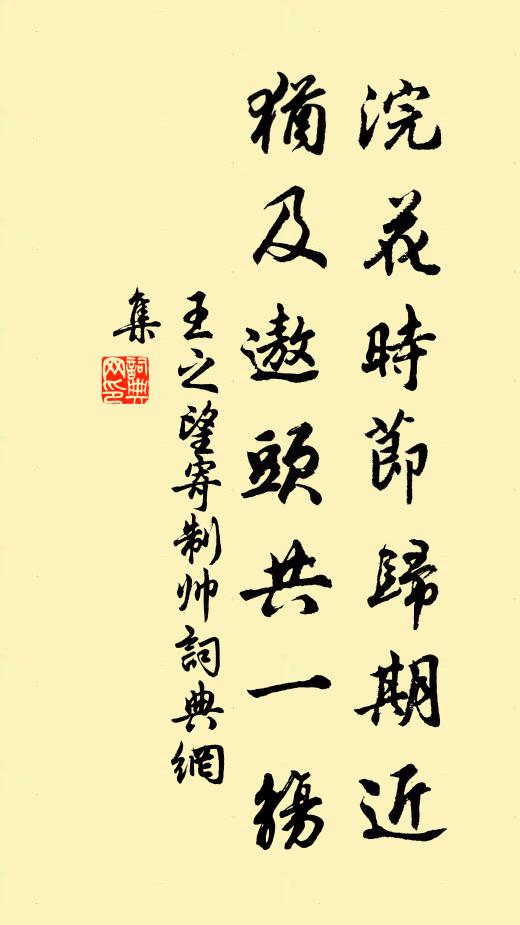 浣花時節歸期近
猶及遨頭共一觴
王之望寄制帅詞典網
集
詞典网印